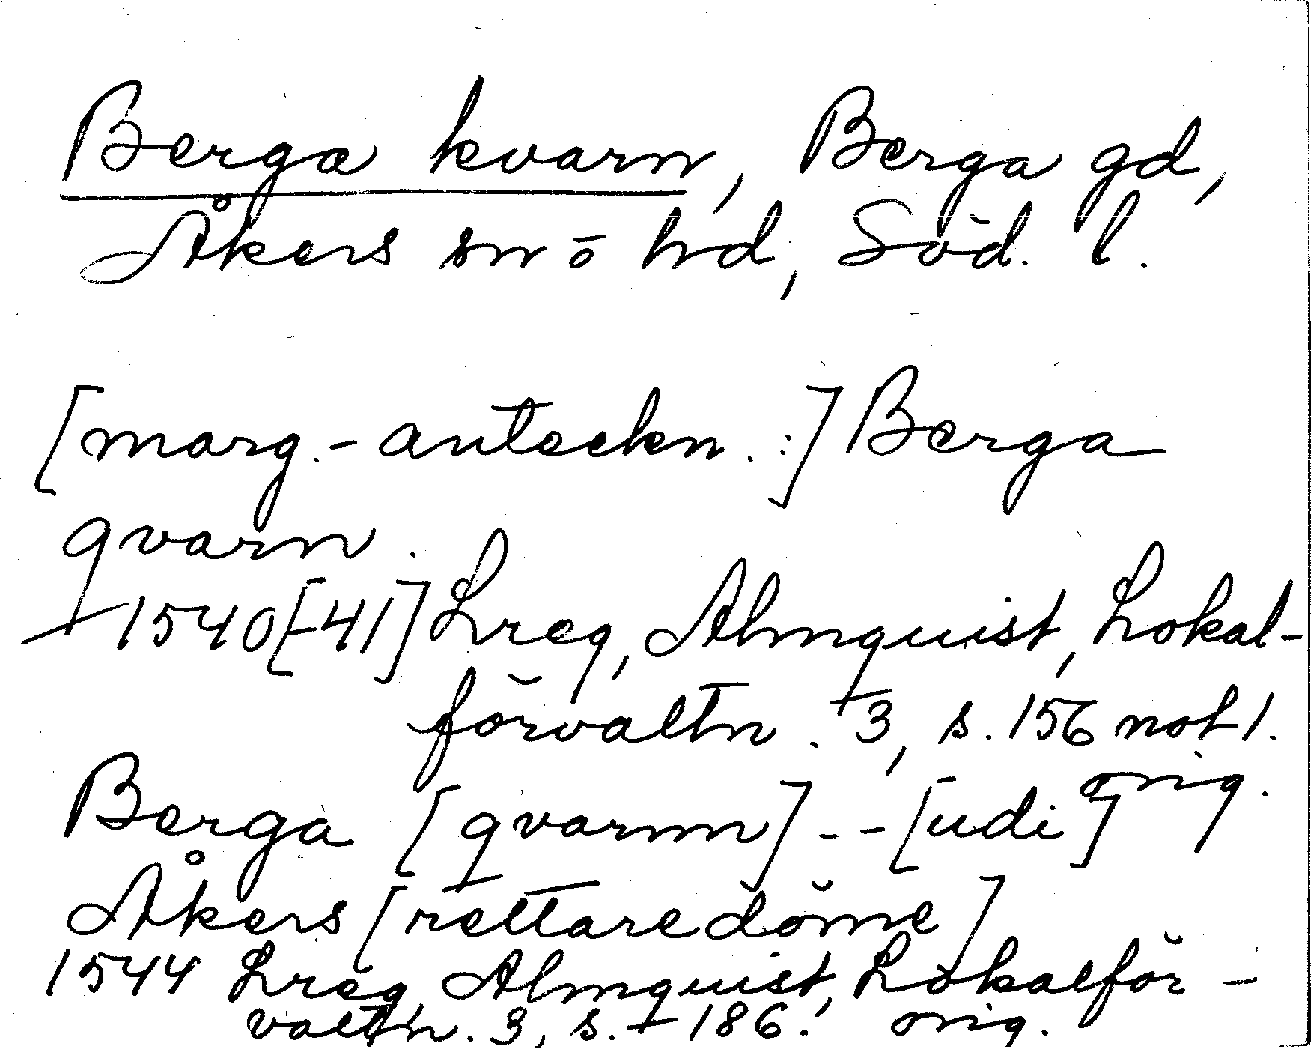 Berga kvarn, Berga gd,
Åkers sn o hd, Söd. l.
[marg.-anteckn.:] Berga
qvarn.
1540[-41] Lreg, Almquist, Lokal-
förvaltn. 3, s. 156 not 1.
orig.
Berga [qvarnn] -- [udi]
Åkers [rettaredöme]
1544 Lreg, Almquist, Lokalför-
valtn. 3, s. 186. orig.